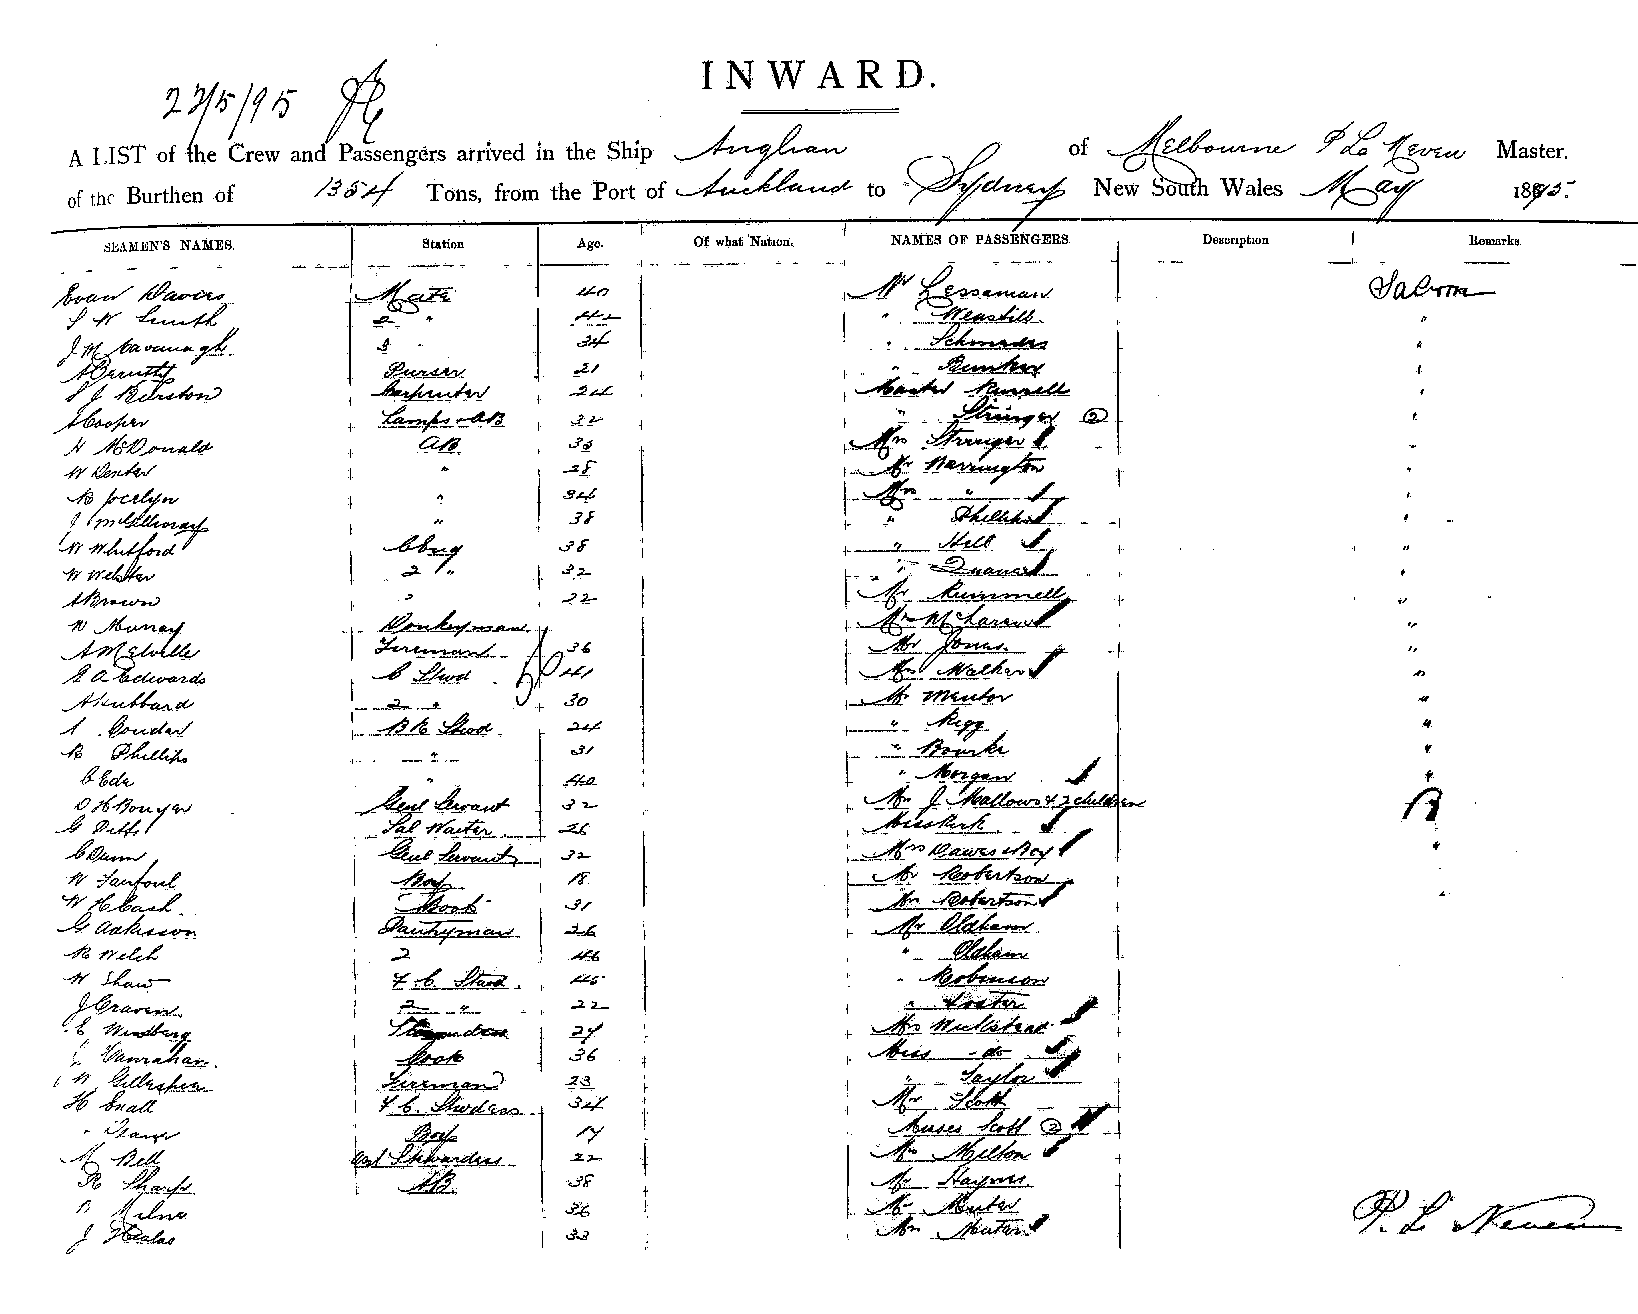 INWARD.
22/5/95
A LIST of the Crew and Passengers arrived in the Ship Anglian of Melbourne P Le Neven Master.
of the Burthen of 1354 Tons, from the Port of Auckland to Sydney New South Wales May 1895.
SEAMEN'S NAMES. Station Age. Of what Nation. NAMES OF PASSENGERS. Description Remarks.
Evan Davies Mate 40 Mr Lesseman Saloon
S W Smith 2 " 42 "
J M Cavanagh 3 " 34 " "
Purser 21 " "
S J Carpenter 24 Master "
A Cooper Lamps & AB 32 " Stringer 2 "
H McDonald AB 35 Mrs Stringer "
W Dexter " 28 Mr Warrington "
B Jocelyn " 34 Mrs " "
J McGillivray " 38 " Phillips "
W Whitford C Eng 38 " Hill "
W Webster 2 " 32 " "
A Brown 3 22 Mr Rummell "
W Murray Donkeyman Mrs McLaren "
A Melville Fireman 36 Mr Jones "
E A Edwards C Stwd 41 Mrs Walker "
A Hubbard 2 " 30 Mr "
BR Stwd 24 " Rigg "
R Phillips " 31 " Bourke "
C Ede " 40 " Morgan "
O H Bowyer Genl Servant 32 Mrs J Mallows & 2 children
G Sal Waiter 26 Miss Kirk
C Dunn Genl Servant 32 Mrs Dawes & Boy "
W Boy 18 Mr Robertson
W H Cash Cook 31 Mrs Robertson "
G Pantryman 26 Mr Oldham
R Welch 2 46 " Oldham
W Shaw F C Stwd 45 " Robinson
J Craven 2 " 22 " Foster
E 27 Mrs
J Hanrahan Cook 36 Miss do
W Gillespie Fireman 23 " Taylor
H Snall F C Stwdess 34 Mr Scott
" Boy 17 Misses Scott 2
M Bell Stewardess 22 Mrs Milton
R Sharp AB 38 Mr Haynes
Milne 36 Mr
J 33 Mrs
P. Le Neven